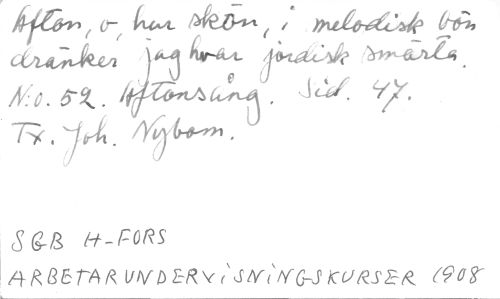 Afton, o, hur skön, i melodisk bön
dränker jag hvar jordisk smärta.
N:o. 52. Aftonsång. Sid. 47.
Tx. Joh. Nybom.
SGB H-FORS
ARBETARUNDERVISNINGSKURSER 1908